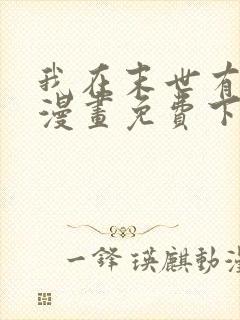 我在末世有
漫畫免費下
一鋒瑛麒動漫